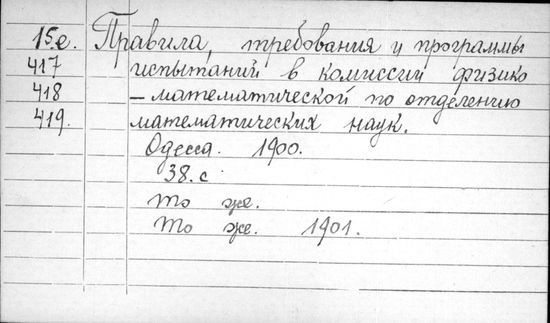 15.е. Правила, требования и программы
417 испытаний в комиссии физико
418 – математической по отделению
419. математических наук.
Одесса. 1900.
38. с
то же.
То же. 1901.